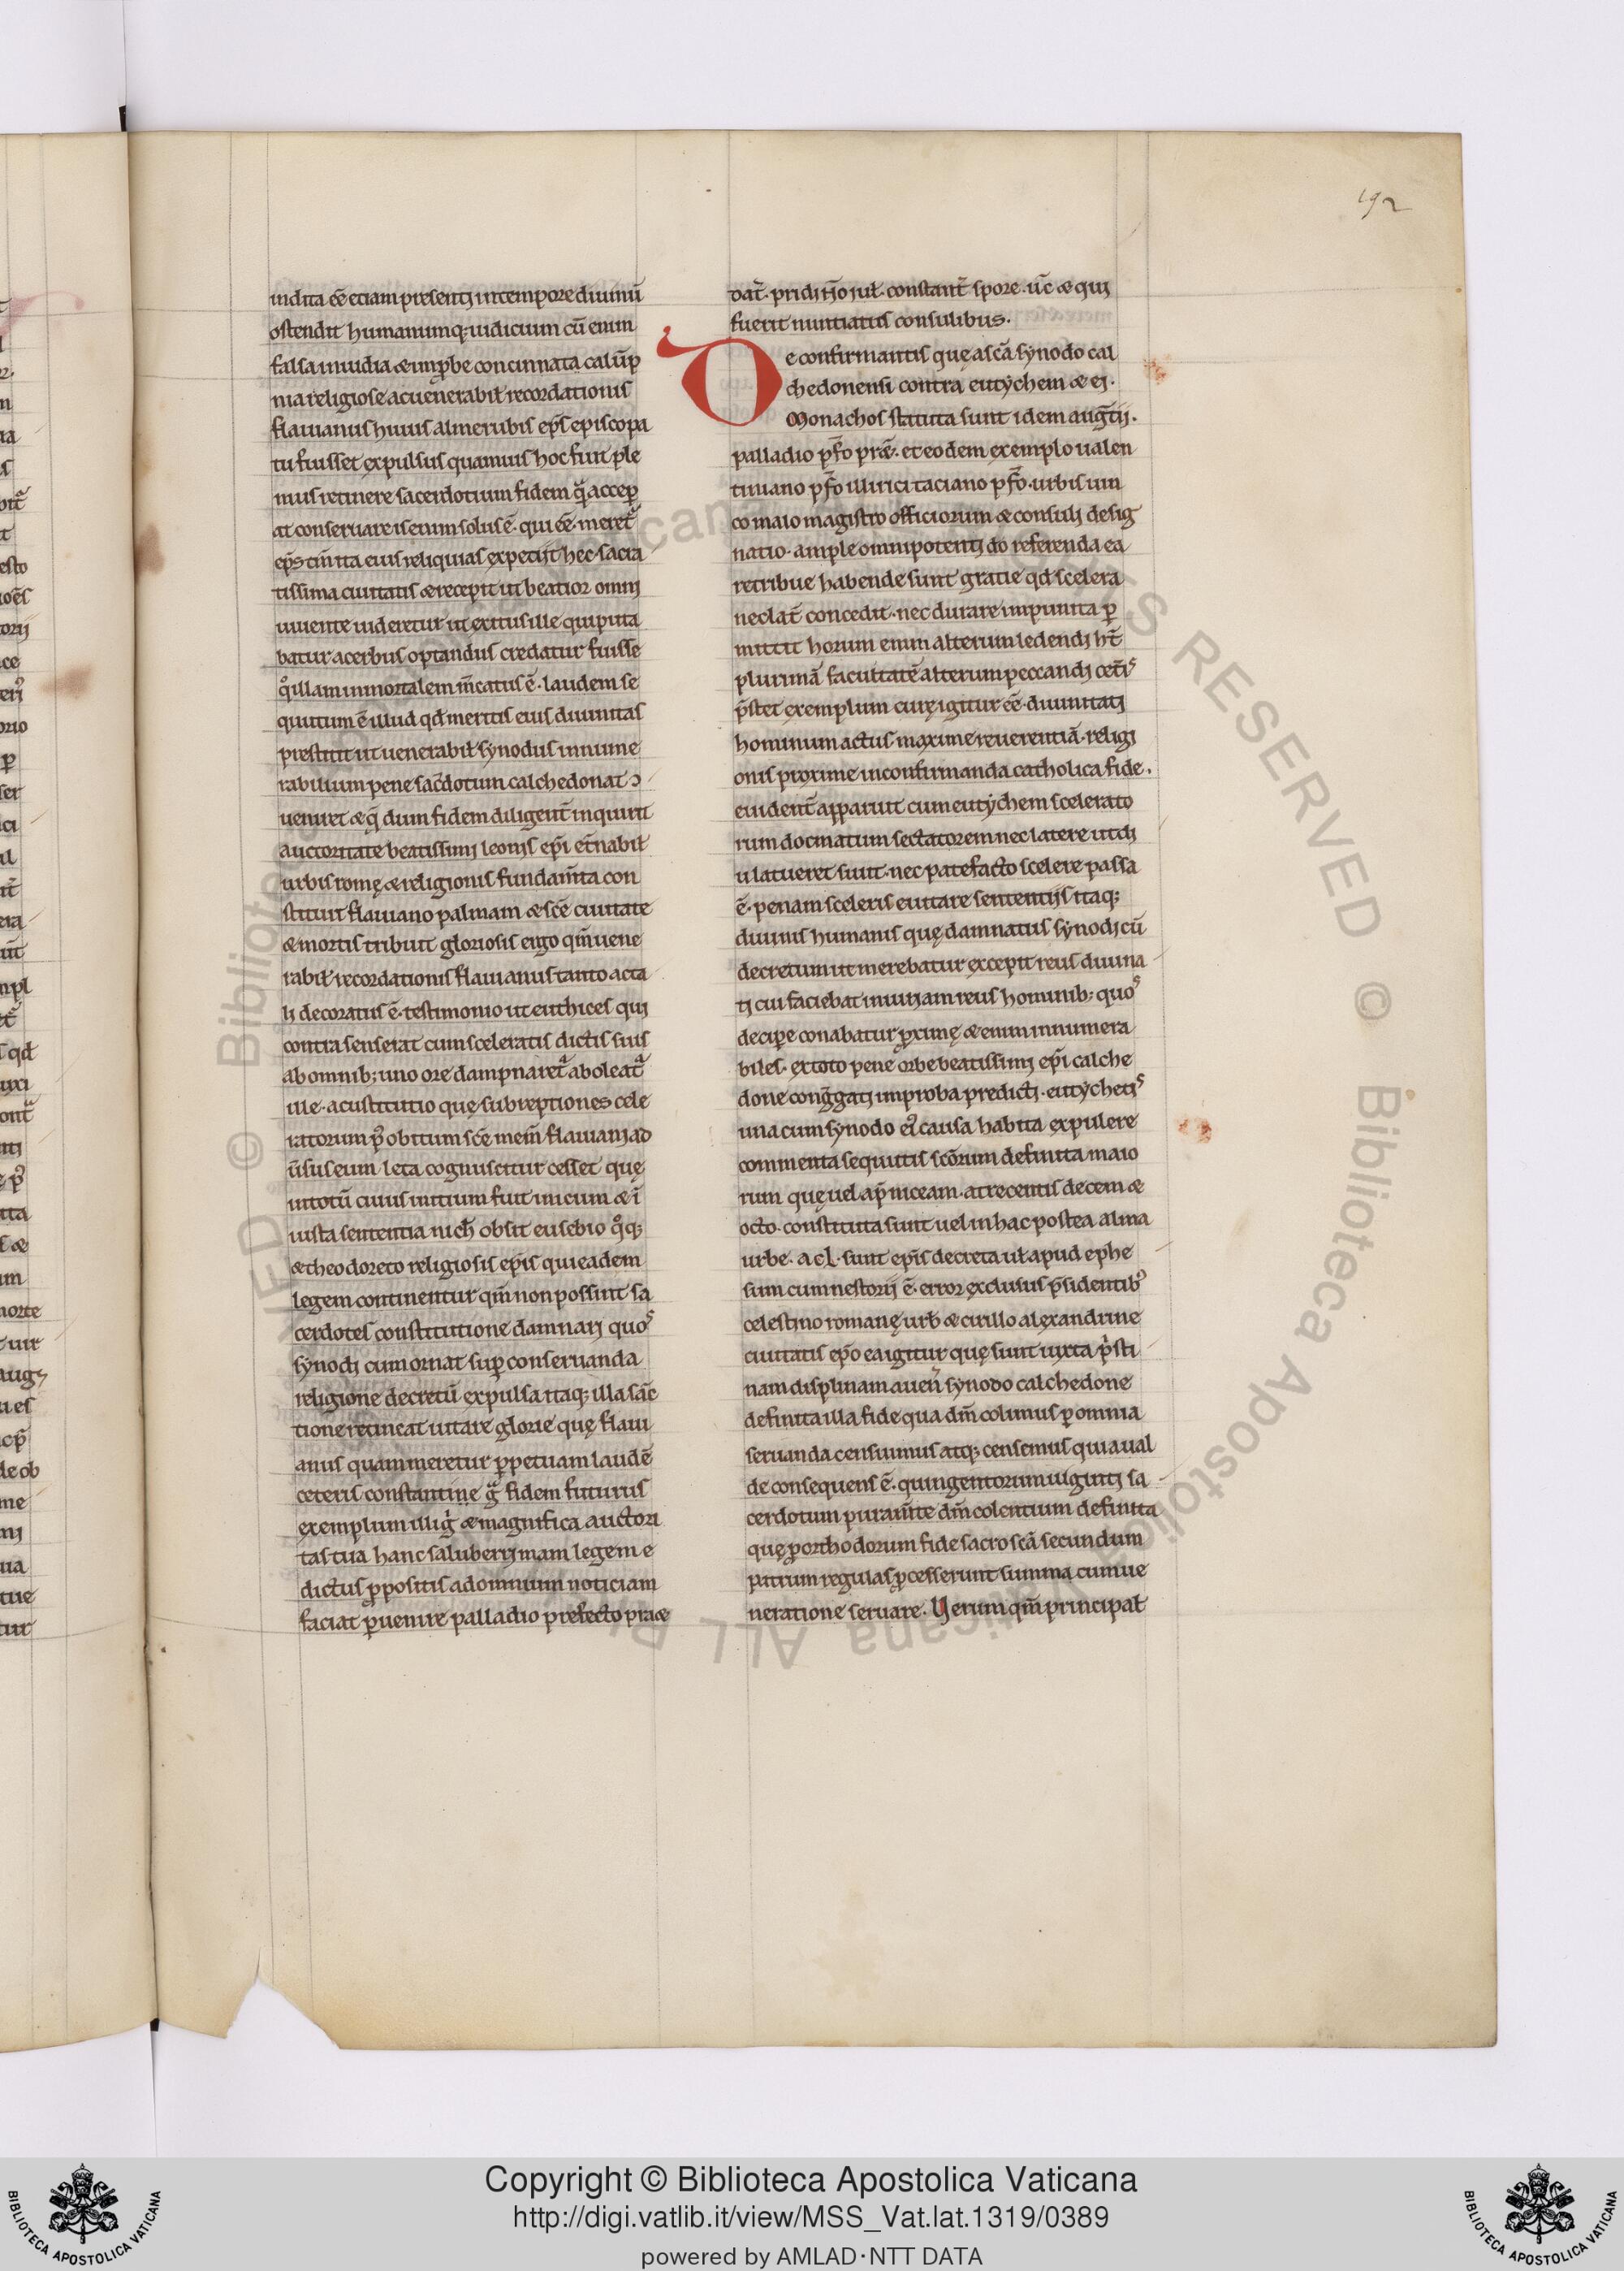 192
uidita eē etiam presentj intempore diuinū
ostendit humanumq; iudicium cū enim
falsa inuidia & improbe concinnata calūp
nia religiose ac uenerabiƚ recordationis
flauianus huius alme urbis ep̄s episcopa
tu fuisset expulsus quamuis hoc fuit ple
nius retinere sacerdotium fidem q̄ accep̱
at conseruare is enim solus ē· qui eē· meret̄
ep̄s cū ita eius reliquias expetijt hec sacra
tissima ciuitatis & recepit ut beatior omnj
uiuente uideretur ut exitus ille qui puta
batur acerbus optandus credatur fuisse
qͦ illam inmortalem m̄catus ē· laudem se
quutum ē illud qd̄ meritis eius diuinitas
prestitit ut uenerabiƚ synodus innume
rabilium pene sac̄dotum calchedonat ɔ
ueniret & q̄ dum fidem diligent̄ inquirit
auctoritate beatissimj leonis ep̄i et̄nabiƚ
urbis romę & religionis fundam̄ta con
stituit flauiano palmam & sc̄e ciuitate
& mortis tribuit gloriosis ergo qm̄ uene
rabiƚ recordationis flauianus tanto ac ta
lj decoratus ē· testimonio ut euthices quj
contra senserat cum sceleratis dictis suis
ab omnib; uno ore dampnaret̄ aboleat̄
ille· acustitutio quę subreptiones cele
ratorum p̄ obitum sc̄e mem̄ flauianj ad
ūsus eum leta cognuscitur cesset quę
intotū cuius initium fuit inicum & ī
iusta sententia nich̄ obsit eusebio qͦq;
& theodoreto religiosis ep̄is qui eadem
legem continentur qm̄ non possunt sa
cerdotes constitutione damnarj quoˢ
synodj cum ornat sup̱ conseruanda
religione decretū expulsa itaq; illa sāc
tione retineat uitare glorie quę flaui
anus quam meretur p̱petuam laudē
ceteris constantine g̃ fidem futurus
exemplum illiḡ & magnifica auctori
tas tua hanc saluberrjmam legem e
dictus p̱positis ad omnium noticiam
faciat p̱uenire palladio prefecto pra&
dat̄· pridi n̄o iuƚ· constant̄ spore· uc̄ & quj
fuerit nuntiatus consulibus.
De confirmantis quę a sc̄a synodo cal
chedonensi contra eutychem & ej·
Monachos statuta sunt idem aug̃tij·
palladio p̄fo pr&̄· et eodem exemplo ualen
tiniano p̄fo illirici taciano p̄fo· urbis uin
co maio magistro officiorum & consulj desig
natio· ample omnipotentj do referenda ea
retribue habende sunt gratie qd̄ scelera
nec lat̄ concedit· nec durare impunita p̱
mittit horum enim alterum ledendj ht̄
plurimā facultatē alterum peccandj cet̄iˢ
p̄stet exemplum cuię igitur eē· diuinitatj
hominum actus maxime reuerentiā· religi
onis proxime in confirmanda catholica fide·
euident̄ apparuit cum eutychem scelerato
rum docmatum sectatorem nec latere ut dj
u latueret siuit· nec patefacto scelere passa
ē· penam sceleris euitare sententijs itaq;
diuinis humanis quę damnatus synodj cū
decretum ut merebatur excepit reus diuina
tj cui faciebat iniuriam reus hominib; quoˢ
decip̱e conabatur p̱ximę & enim innumera
biles· ex toto pene orbe beatissimj ep̄i calche
done cong̃gatj improba predictj· eutychetiˢ
una cum synodo ei᷒ causa habita expulere
commenta sequutis sc̄orum definita maio
rum quę uel ap̄ niceam· a trecentis decem &
octo· constituta sunt uel in hac postea alma
urbe· a cl· sunt ep̄is decreta uƚ apud ephe
sum cum nestorij ē· error exclusus p̄sidentib᷒
celestino romanę urb̄ & cirillo alexandrine
ciuitatis ep̄o ea igitur quę sunt iuxta p̄sti
nam displinam a uen̄ synodo calchedone
definita illa fide qua dm̄ colimus p̱ omnia
seruanda censuimus atq; censemus quia ual
de consequens ē· quingentorum uigintj sa
cerdotum pura m̄te dm̄ colentium definita
quę p̱ orthodorum fide sacro sc̄a secundum
patrum regulas p̱cesserunt summa cum ue
neratione seruare. Verum qm̄ principaƚ
Copyright © Biblioteca Apostolica Vaticana
http://digi.vatlib.it/view/MSS_Vat.lat.1319/0389
powered by AMLAD·NTT DATA